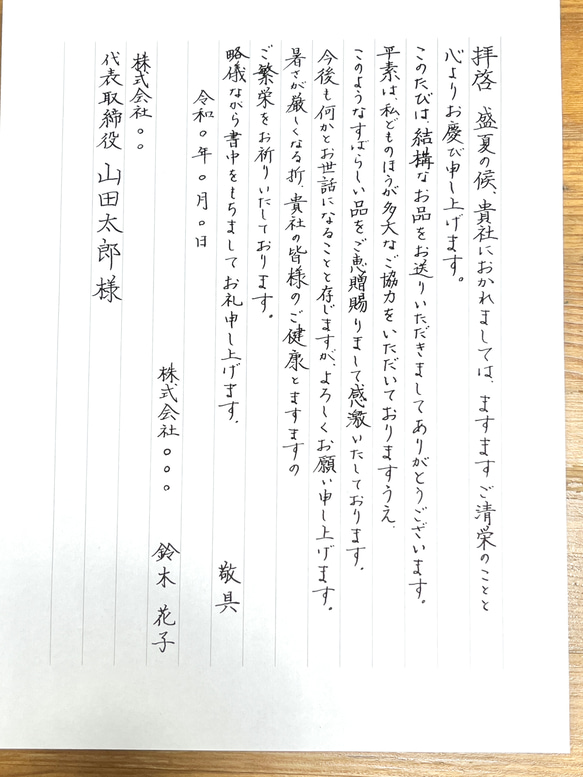 拝啓　盛夏の候、貴社におかれましては、ますますご清栄のことと
心よりお慶び申し上げます。
このたびは、結構なお品をお送りいただきましてありがとうございます。
平素は、私どものほうが多大なご協力をいただいておりますうえ、
このようなすばらしい品をご恵贈賜りまして感激いたしております。
今後も何かとお世話になることと存じますが、よろしくお願い申し上げます。
暑さが厳しくなる折、貴社の皆様のご健康とますますの
ご繁栄をお祈りいたしております。
略儀ながら書中をもちましてお礼申し上げます。　敬具
令和〇年〇月〇日
株式会社〇〇〇　鈴木　花子
株式会社〇〇
代表取締役　山田太郎様